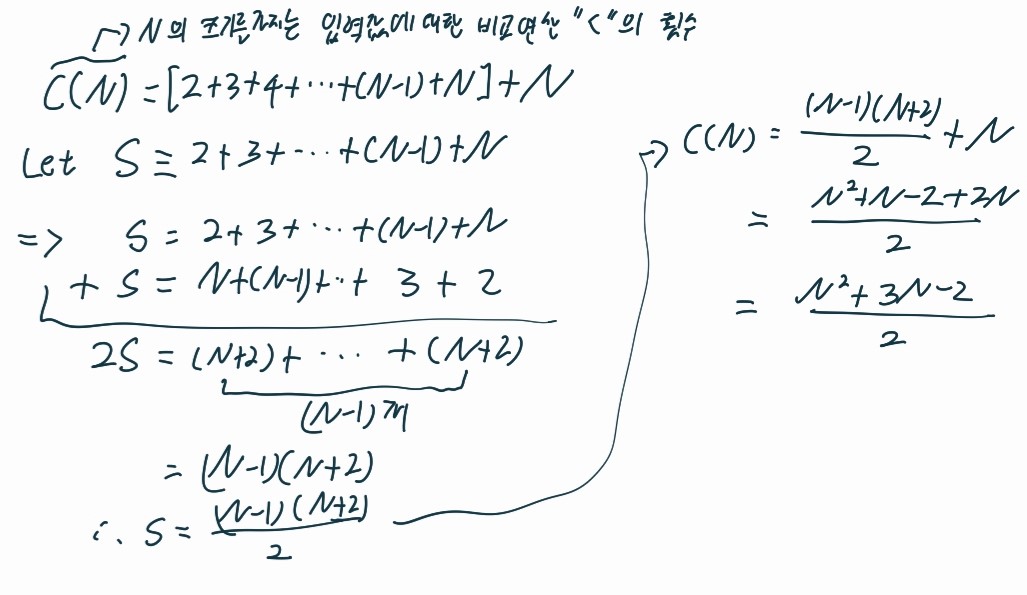 → N의 크기를 가지는 입력값에 대한 비교연산 "<"의 횟수
C(N) = [2+3+4+⋯+(N-1)+N]+N
Let S ≡ 2+3+⋯+(N-1)+N
=> S = 2+3+⋯+(N-1)+N
+ S = N+(N-1)+⋯+ 3 + 2
2S = (N+2)+ ⋯ +(N+2)
(N-1)개
= (N-1)(N+2)
∴ S = (N-1)(N+2)/2
→ C(N) = (N-1)(N+2)/2 + N
= N²+N-2+2N/2
= N²+3N-2/2